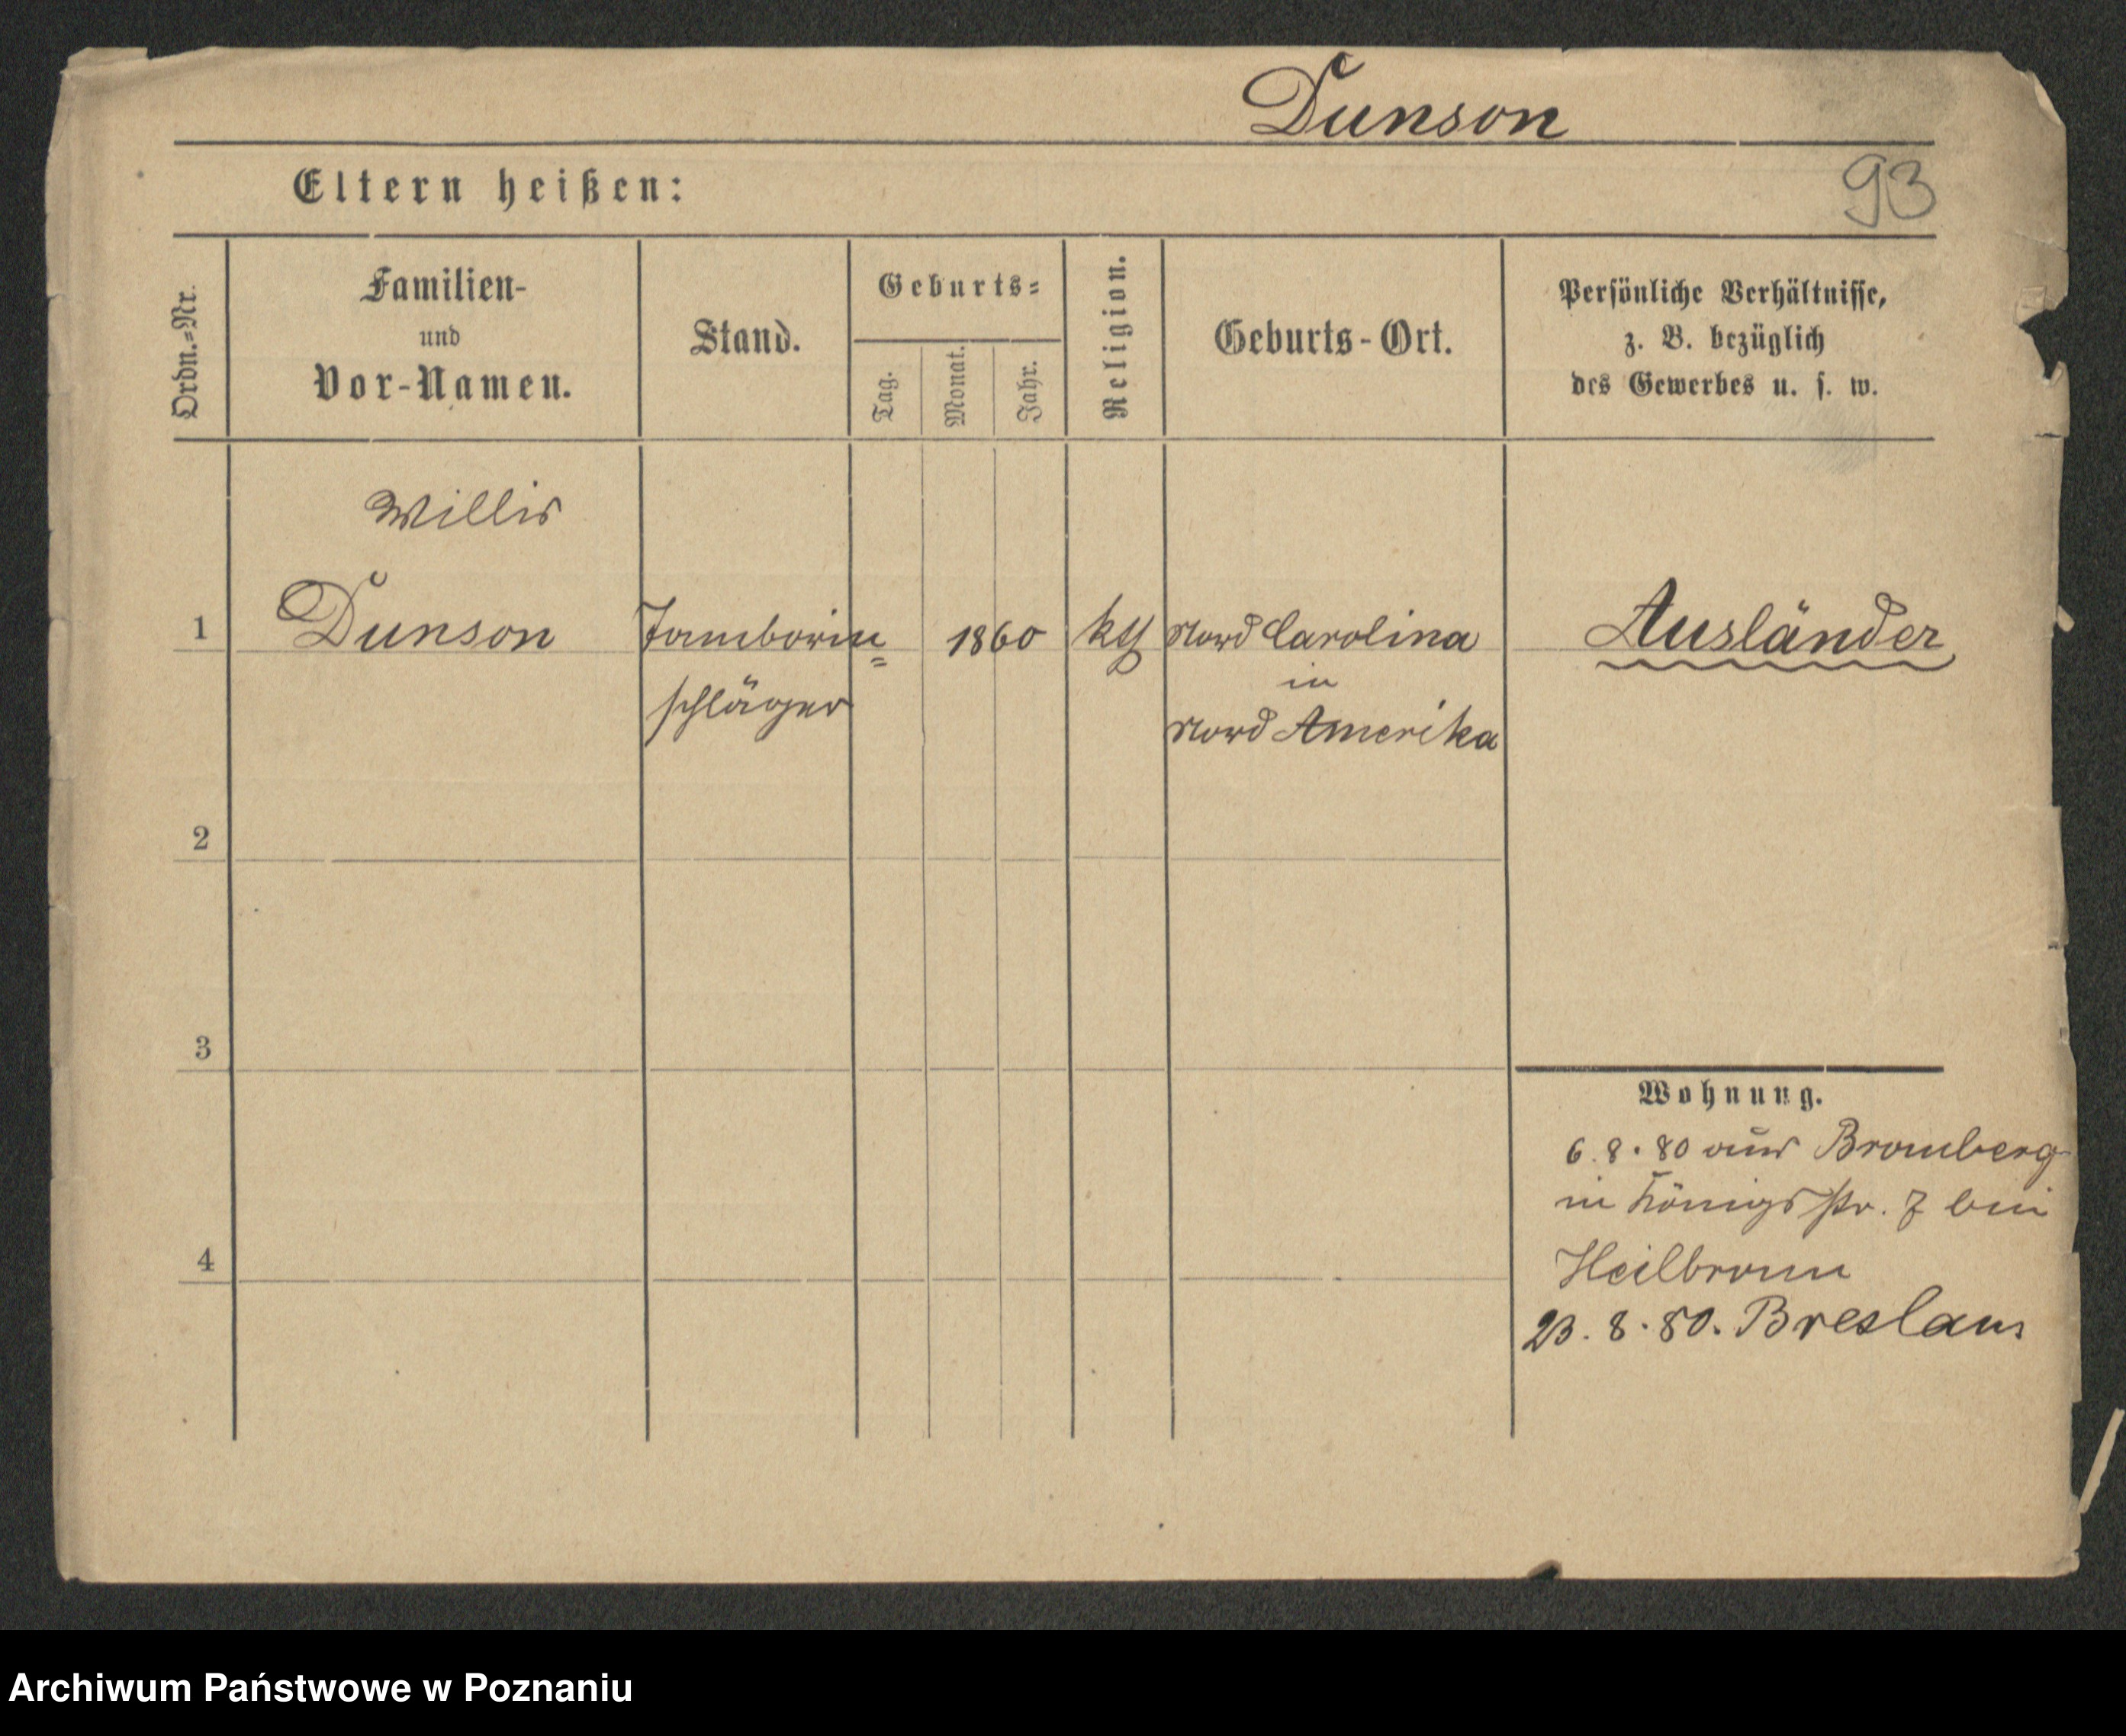 Dunson
93
Eltern heißen:
Ordn.=Nr.
Familien-
und
Vor-Namen.
Stand.
Geburts=
Tag.
Monat.
Jahr.
Religion.
Geburts-Ort.
Persönliche Verhältnisse,
z. B. bezüglich
des Gewerbes u. s. w.
Willis
1 Dunson Tamborin= 1860 kth Nord Carolina Ausländer
schläger in
Nord Amerika
2
3
Wohnung.
6.8.80 aus Bromberg
in Königsstr. 7 bei
4 Heilbronn
23.8.80. Breslau
Archiwum Państwowe w Poznaniu